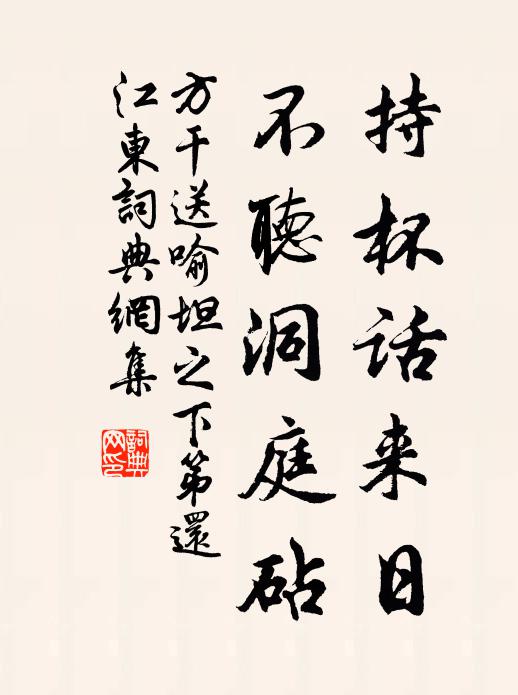 持杯话来日
不聽洞庭砧
方干送喻坦之下第還
江東詞典網集
詞典
网印